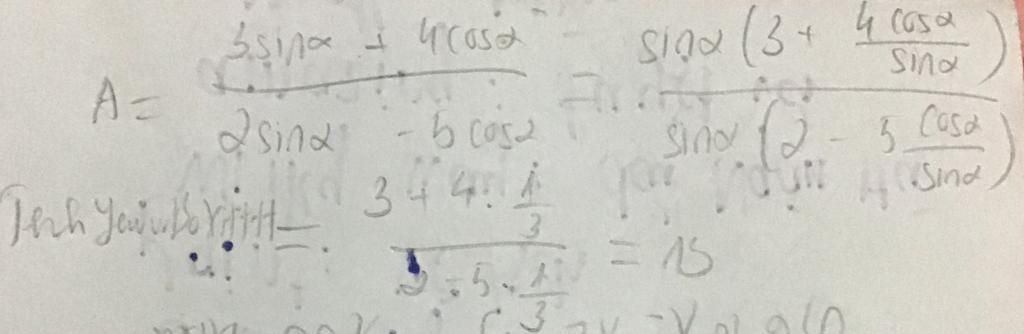 A = \frac{3 sinα + 4 cosα}{2 sinα - 5 cosα} = \frac{sinα (3 + \frac{4 cosα}{sinα})}{sinα (2 - 5 \frac{cosα}{sinα})}
= \frac{3 + 4 . \frac{1}{3}}{2 - 5 . \frac{1}{3}} = 13